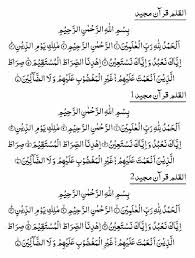 القلم قرآن مجید
بِسْمِ اللّٰهِ الرَّحْمٰنِ الرَّحِيْمِ
اَلْحَمْدُ لِلّٰهِ رَبِّ الْعٰلَمِيْنَ ۝ الرَّحْمٰنِ الرَّحِيْمِ ۝ مٰلِكِ يَوْمِ الدِّيْنِ ۝
اِيَّاكَ نَعْبُدُ وَ اِيَّاكَ نَسْتَعِيْنُ ۝ اِهْدِنَا الصِّرَاطَ الْمُسْتَقِيْمَ ۝ صِرَاطَ
الَّذِيْنَ اَنْعَمْتَ عَلَيْهِمْ غَيْرِ الْمَغْضُوْبِ عَلَيْهِمْ وَ لَا الضَّآلِّيْنَ ۝
القلم قرآن مجید 1
بِسْمِ اللّٰهِ الرَّحْمٰنِ الرَّحِيْمِ
اَلْحَمْدُ لِلّٰهِ رَبِّ الْعٰلَمِيْنَ ۝ الرَّحْمٰنِ الرَّحِيْمِ ۝ مٰلِكِ يَوْمِ الدِّيْنِ ۝
اِيَّاكَ نَعْبُدُ وَ اِيَّاكَ نَسْتَعِيْنُ ۝ اِهْدِنَا الصِّرَاطَ الْمُسْتَقِيْمَ ۝ صِرَاطَ
الَّذِيْنَ اَنْعَمْتَ عَلَيْهِمْ غَيْرِ الْمَغْضُوْبِ عَلَيْهِمْ وَ لَا الضَّآلِّيْنَ ۝
القلم قرآن مجید 2
بِسْمِ اللّٰهِ الرَّحْمٰنِ الرَّحِيْمِ
اَلْحَمْدُ لِلّٰهِ رَبِّ الْعٰلَمِيْنَ ۝ الرَّحْمٰنِ الرَّحِيْمِ ۝ مٰلِكِ يَوْمِ الدِّيْنِ ۝
اِيَّاكَ نَعْبُدُ وَ اِيَّاكَ نَسْتَعِيْنُ ۝ اِهْدِنَا الصِّرَاطَ الْمُسْتَقِيْمَ ۝ صِرَاطَ
الَّذِيْنَ اَنْعَمْتَ عَلَيْهِمْ غَيْرِ الْمَغْضُوْبِ عَلَيْهِمْ وَ لَا الضَّآلِّيْنَ ۝